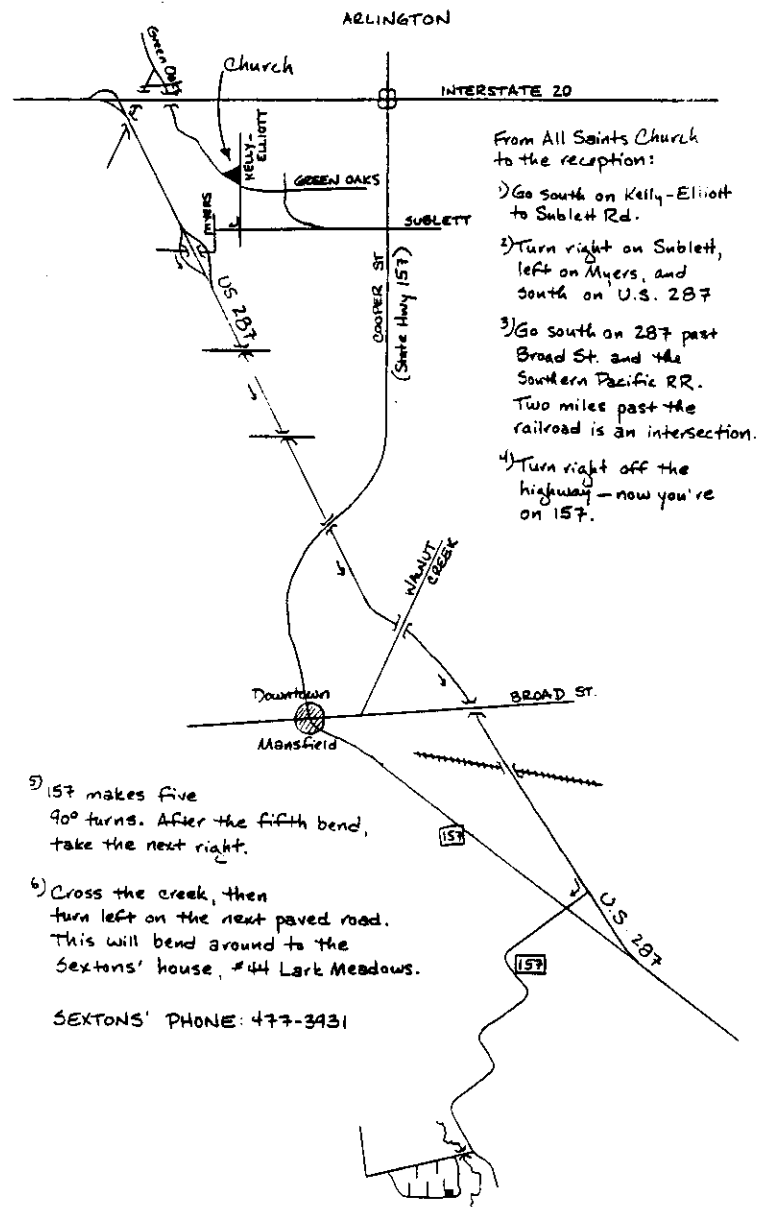 ARLINGTON
Green Oaks
Church
INTERSTATE 20
KELLY-
ELLIOTT
GREEN OAKS
MYERS
SUBLETT
US 287
COOPER ST
(State Hwy 157)
From All Saints Church
to the reception:
1) Go south on Kelly-Elliott
to Sublett Rd.
2) Turn right on Sublett,
left on Myers, and
south on U.S. 287
3) Go south on 287 past
Broad St. and the
Southern Pacific RR.
Two miles past the
railroad is an intersection.
4) Turn right off the
highway — now you're
on 157.
WALNUT
CREEK
Downtown
Mansfield
BROAD ST.
5) 157 makes five
90° turns. After the fifth bend,
take the next right.
157
6) Cross the creek, then
turn left on the next paved road.
This will bend around to the
Sextons' house, #44 Lark Meadows.
U.S. 287
157
SEXTONS' PHONE: 477-3931